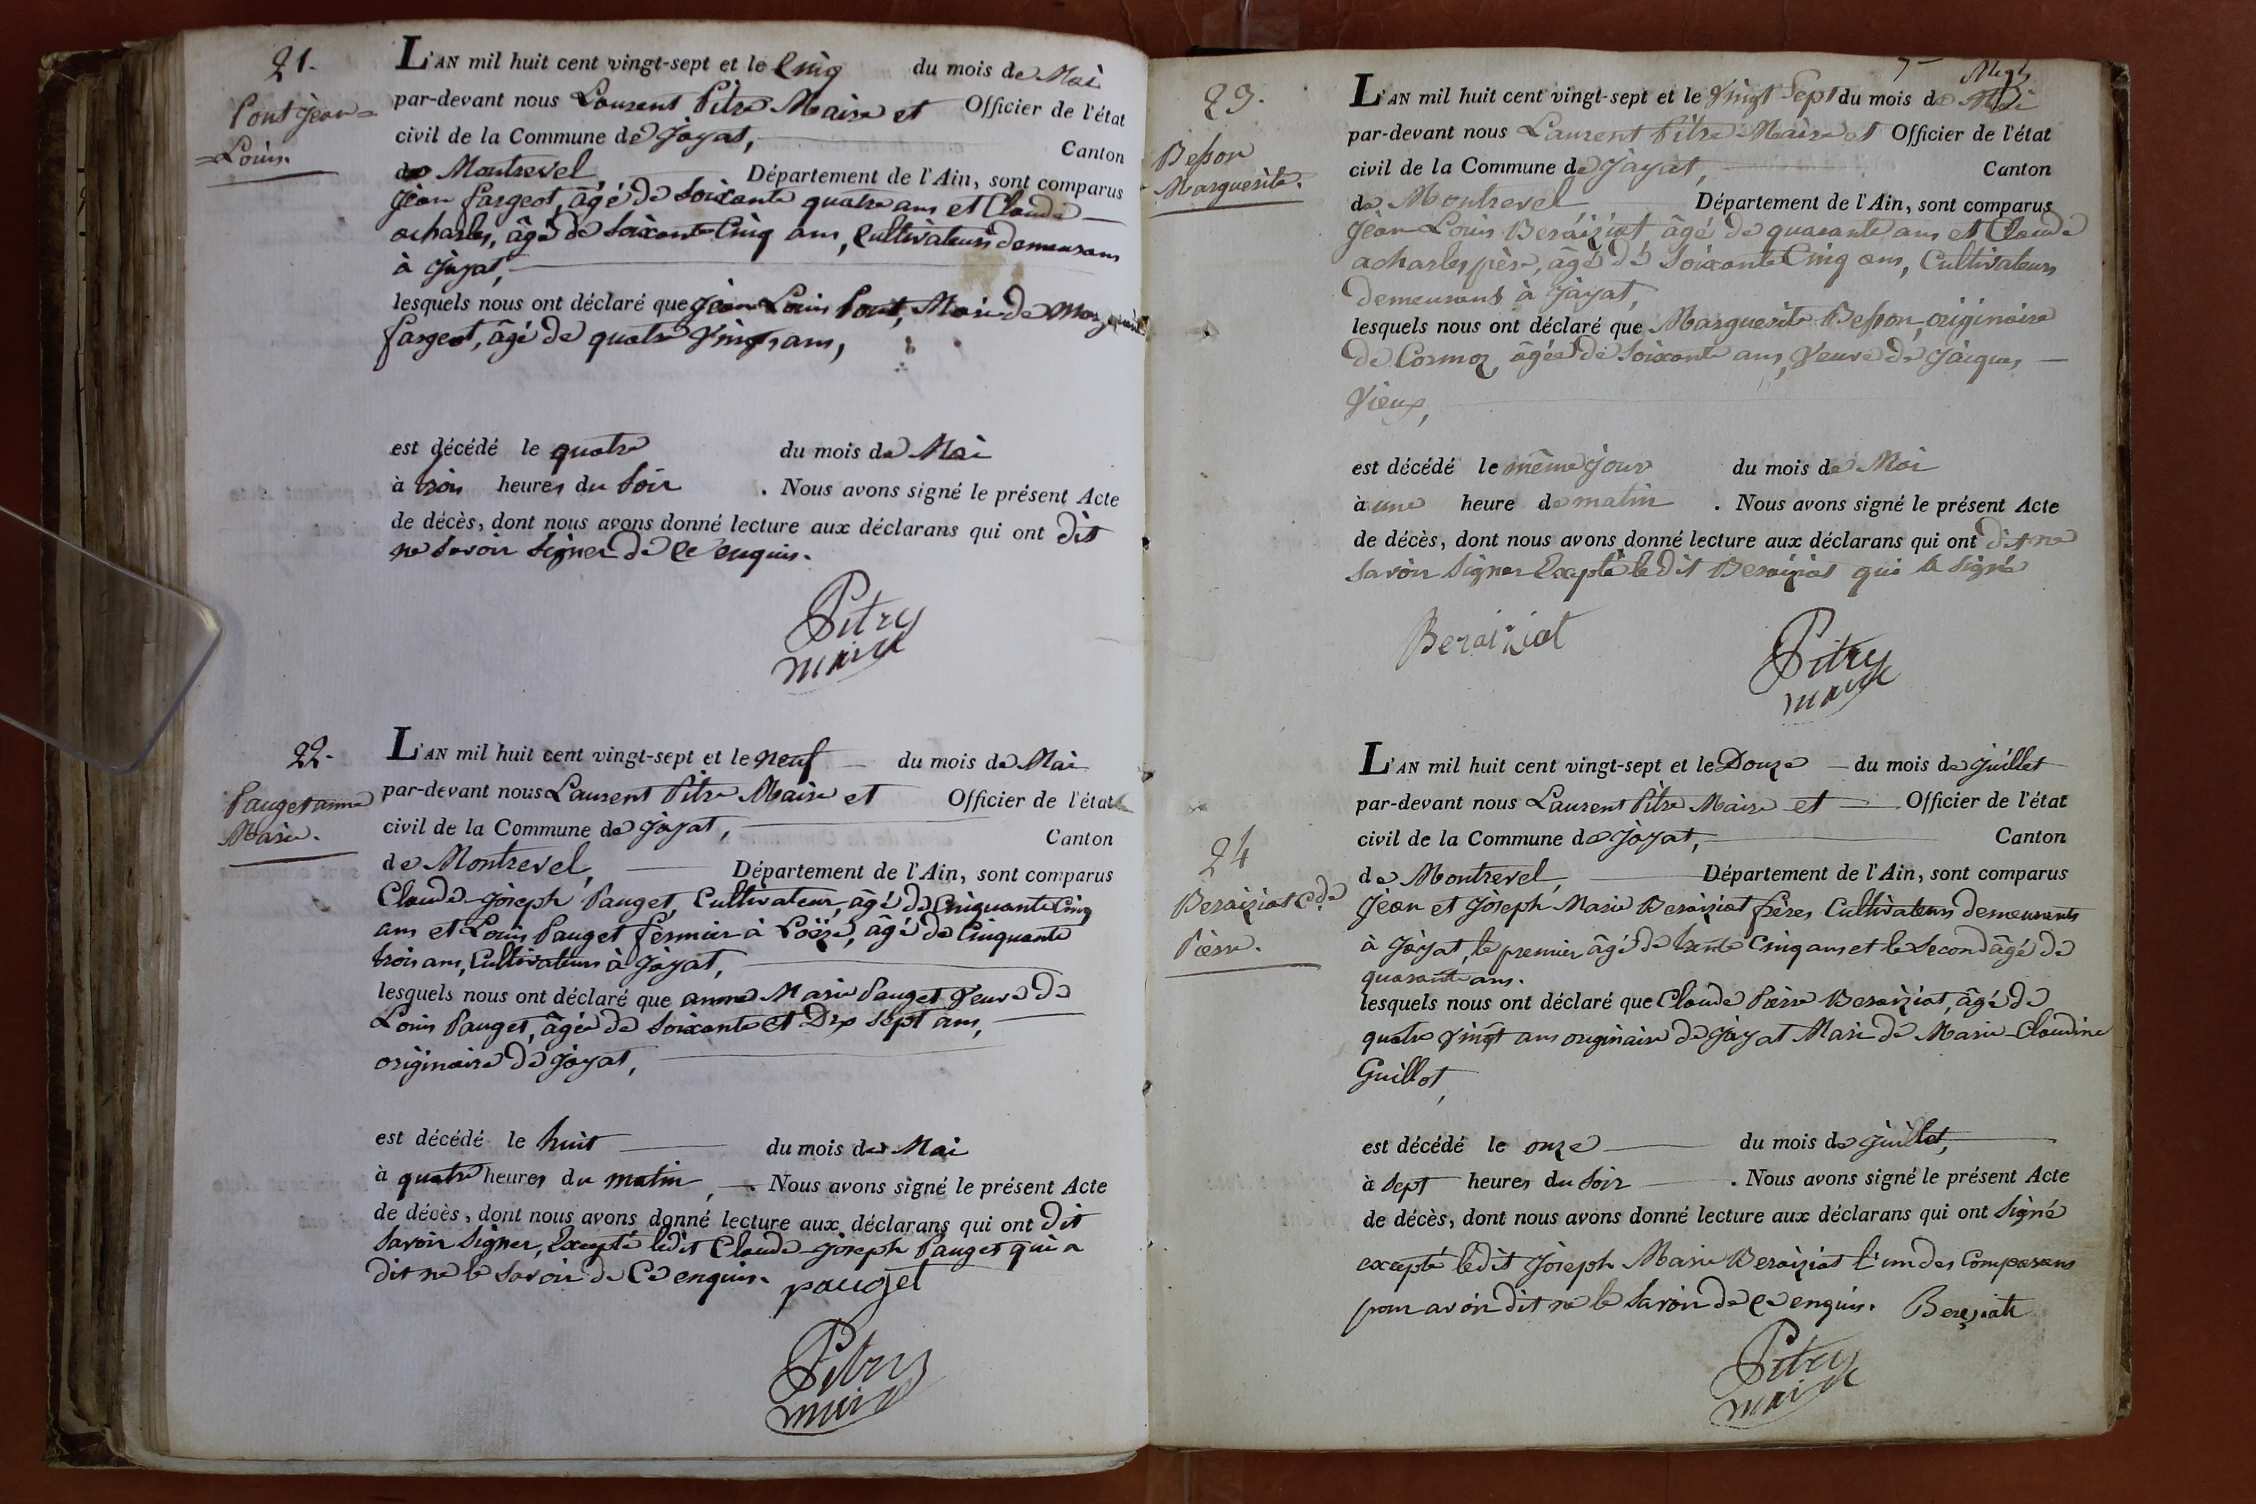 21.
Pont Jean=
=Louis.
L'AN mil huit cent vingt-sept et le Cinq du mois de Mai
par-devant nous Laurent Pitre Maire et Officier de l'état
civil de la Commune de Jayat, Canton
de Montrevel, Département de l'Ain, sont comparus
Jean fargeot, âgé de Soixante quatre ans et Claude
acharles, âgé de Soixante Cinq ans, Cultivateurs demeurans
à Jayat,
lesquels nous ont déclaré que Jean Louis Pont, Mari de Marguerite
fargeot, âgé de quatre Vingts ans,
est décédé le quatre du mois de Mai
à trois heures du Soir . Nous avons signé le présent Acte
de décès, dont nous avons donné lecture aux déclarans qui ont dit
ne Savoir Signer de Ce enquis.
Pitre
maire
22.
Pauget anne
Marie.
L'AN mil huit cent vingt-sept et le neuf du mois de Mai
par-devant nous Laurent Pitre Maire et Officier de l'état
civil de la Commune de Jayat, Canton
de Montrevel, Département de l'Ain, sont comparus
Claude-Joseph Pauget, Cultivateur, âgé de Cinquante Cinq
ans et Louis Pauget fermier à Loëze, âgé de Cinquante
trois ans, Cultivateurs à Jayat,
lesquels nous ont déclaré que anne Marie Pauget Veuve de
Louis Pauget, âgée de Soixante et Dix sept ans,
originaire de Jayat,
est décédé le huit du mois de Mai
à quatre heures du matin, . Nous avons signé le présent Acte
de décès, dont nous avons donné lecture aux déclarans qui ont dit
Savoir Signer, Excepté ledit Claude-Joseph Pauget qui a
dit ne le Savoir de Ce enquis. pauget
Pitre
maire
23.
Besson
Marguerite.
L'AN mil huit cent vingt-sept et le Vingt Sept du mois de Mai
par-devant nous Laurent Pitre Maire et Officier de l'état
civil de la Commune de Jayat, Canton
de Montrevel Département de l'Ain, sont comparus
Jean Louis Beraiziat âgé de quarante ans et Claude
acharles père, âgé de Soixante Cinq ans, Cultivateurs
demeurans à Jayat,
lesquels nous ont déclaré que Marguerite Besson, originaire
de Cormoz, âgée de Soixante ans, Veuve de Jacques
Vieux,
est décédé le même jour du mois de Mai
à une heure de matin . Nous avons signé le présent Acte
de décès, dont nous avons donné lecture aux déclarans qui ont dit ne
Savoir Signer Excepté le dit Beraiziat qui a Signé
Beraiziat
Pitre
maire
24
Beraiziat Cde
Pierre.
L'AN mil huit cent vingt-sept et le Douze du mois de Juillet
par-devant nous Laurent Pitre Maire et Officier de l'état
civil de la Commune de Jayat, Canton
de Montrevel, Département de l'Ain, sont comparus
Jean et Joseph Marie Beraiziat frères Cultivateurs demeurants
à Jayat, le premier âgé de trente Cinq ans et le Second âgé de
quarante ans.
lesquels nous ont déclaré que Claude Pierre Beraiziat, âgé de
quatre Vingt ans originaire de Jayat Mari de Marie-Claudine
Guillot,
est décédé le onze du mois de Juillet,
à Sept heures du Soir . Nous avons signé le présent Acte
de décès, dont nous avons donné lecture aux déclarans qui ont Signé
excepté ledit Joseph Marie Beraiziat l'un des Comparans
pour avoir dit ne le Savoir de Ce enquis. Bereziat
Pitre
maire